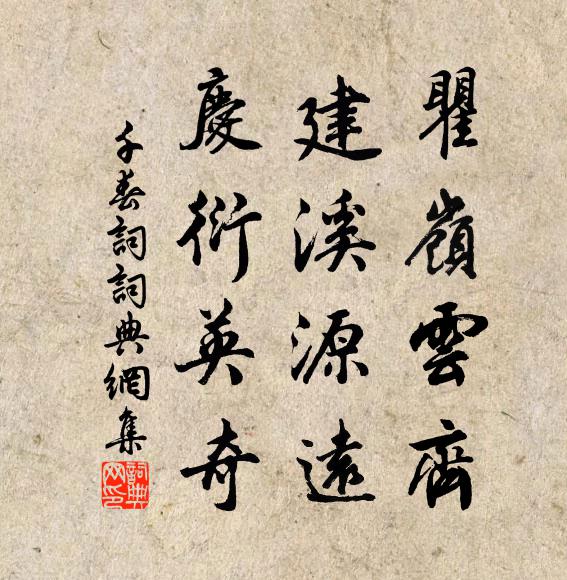 瞿嶺雲齊
建溪源遠
慶衍英奇
千春詞詞典網集
詞典網印